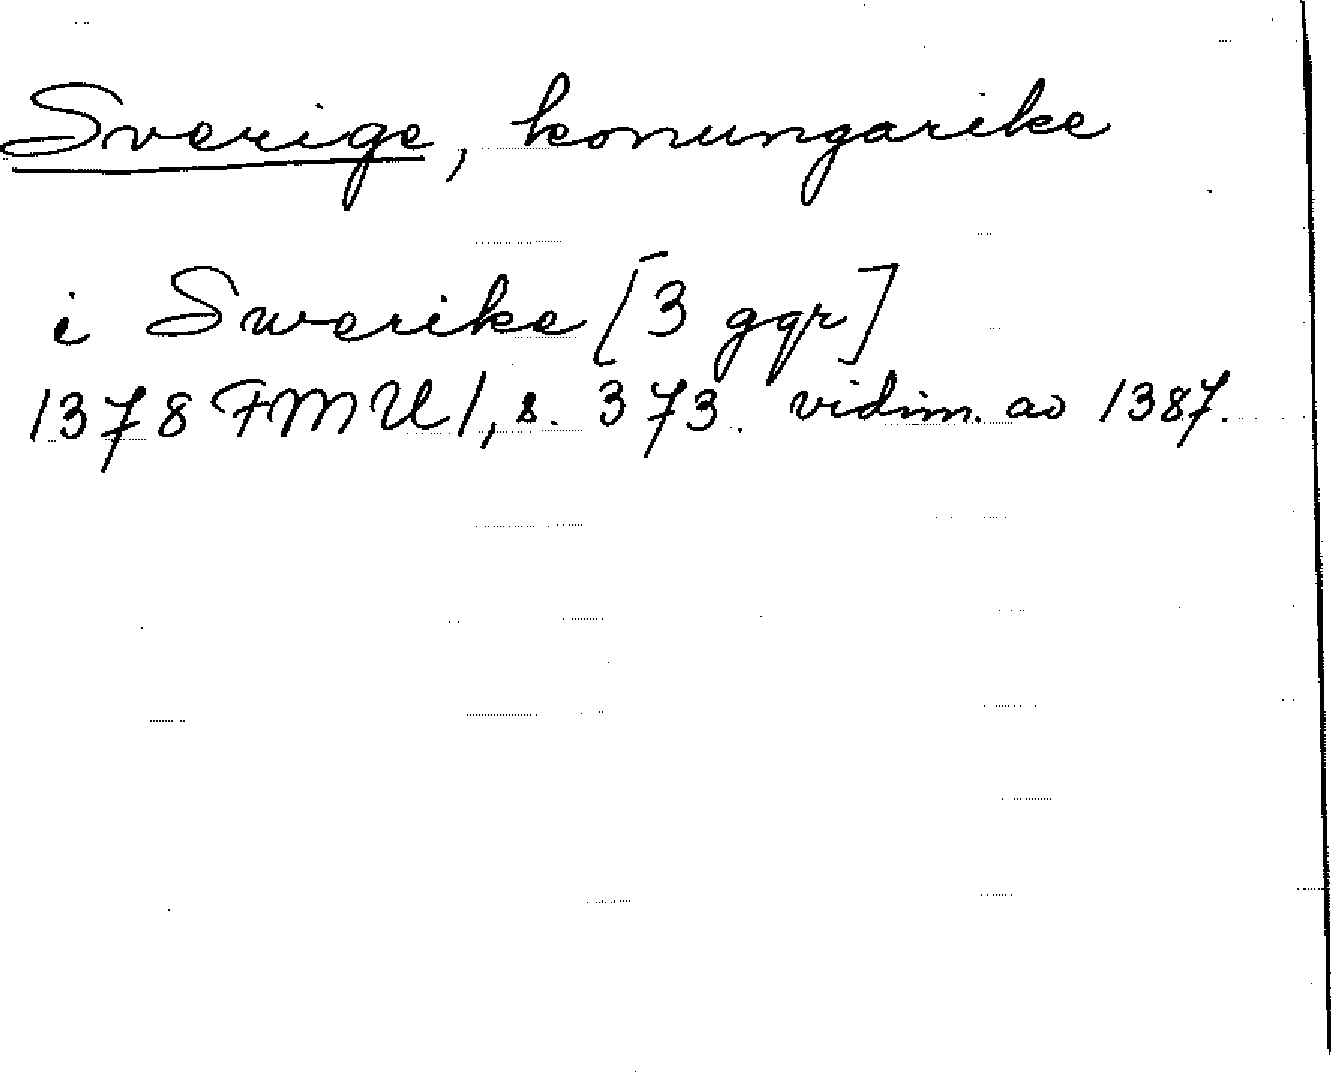 Sverige, konungarike
i Swerike [3 ggr]
1378 FMU 1, s. 373. vidim. av 1387.